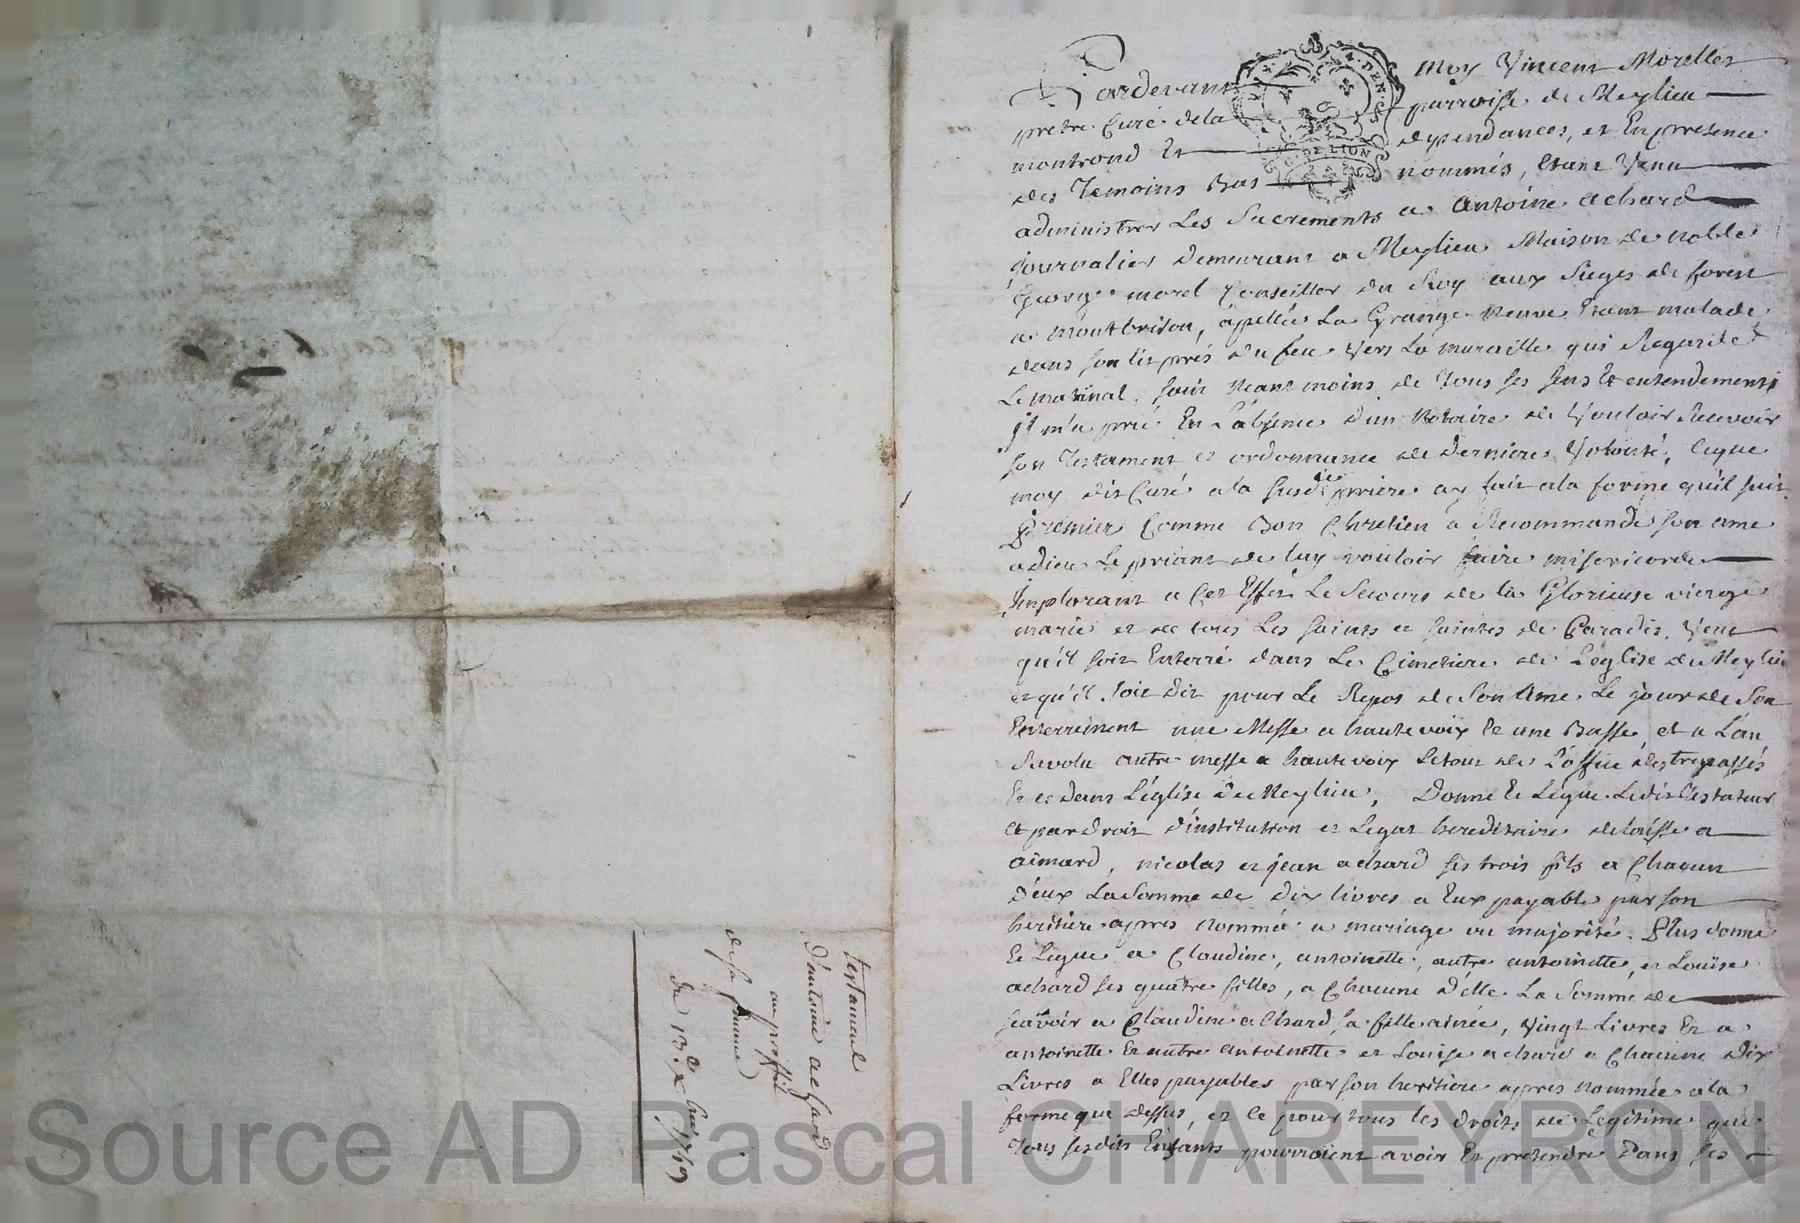 testament
d'antoine achard
au proffit
de sa femme
du 13e xbre 1749
Pardevant Moy Vincent Morellet
prêtre Curé de la parroisse de Meylieu
montrond Et dependances, et En presence
des Temoins Bas nommés, Etant Venu
administrer Les Sacrements a Antoine achard
journalier Demeurant a Meylieu Maison de noble
George morel Conseiller du Roy aux Sieges de forest
a montbrison, apellée La Grange neuve Etant malade
dans son lit près du feu Vers La muraille qui Regarde
Le matinal. sain neant moins de Tous ses sens Et entendements
jl m'a prié En L'absence d'un Notaire de Vouloir Recevoir
son Testament et ordonnance de derniere Volonté, ceque
moy dit Curé a la susdte prière ay fait a la forme qu'il suit
Premier Comme Bon Chretien a Recommandé son ame
a dieu Le priant de luy vouloir faire misericorde
Implorant a Cet Effet Le Secours de la Glorieuse vierge
marie et de tous Les saints et saintes de Paradis. Veut
qu'il soit Enterré dans Le Cimetiere de L'eglise de Meylieu
et qu'il soit Dit pour Le Repos de Son Ame Le jour de Son
Enterrement une Messe a haute voix Et une Basse, et a L'an
Revolu autre messe a haute voix Le tout de L'office des trepassés
Et ce Dans L'église De Meylieu, Donne Et Legue Ledit testateur
Et par droit d'institution et Legat hereditaire delaisse a
aimard, nicolas et jean achard ses trois fils a Chacun
D'eux La Somme de Dix livres a Eux payable par son
heritiere apres nommée a mariage ou majorité. Plus donne
Et Legue a Claudine, antoinette, autre antoinette, et Louise
achard ses quatre filles, a Chacune d'elle La Somme de
sçavoir a Claudine achard sa fille ainée, Vingt Livres Et a
antoinette Et autre Antoinette et Louise achard a Chacune Dix
Livres a Elles payables par son heritiere apres nommée a la
forme que dessus, et Ce pour tous les droits de Legitime que
Tous sesdits Enfants pourroient avoir Et pretendre Dans ses
DE LION
Source AD Pascal CHAREYRON